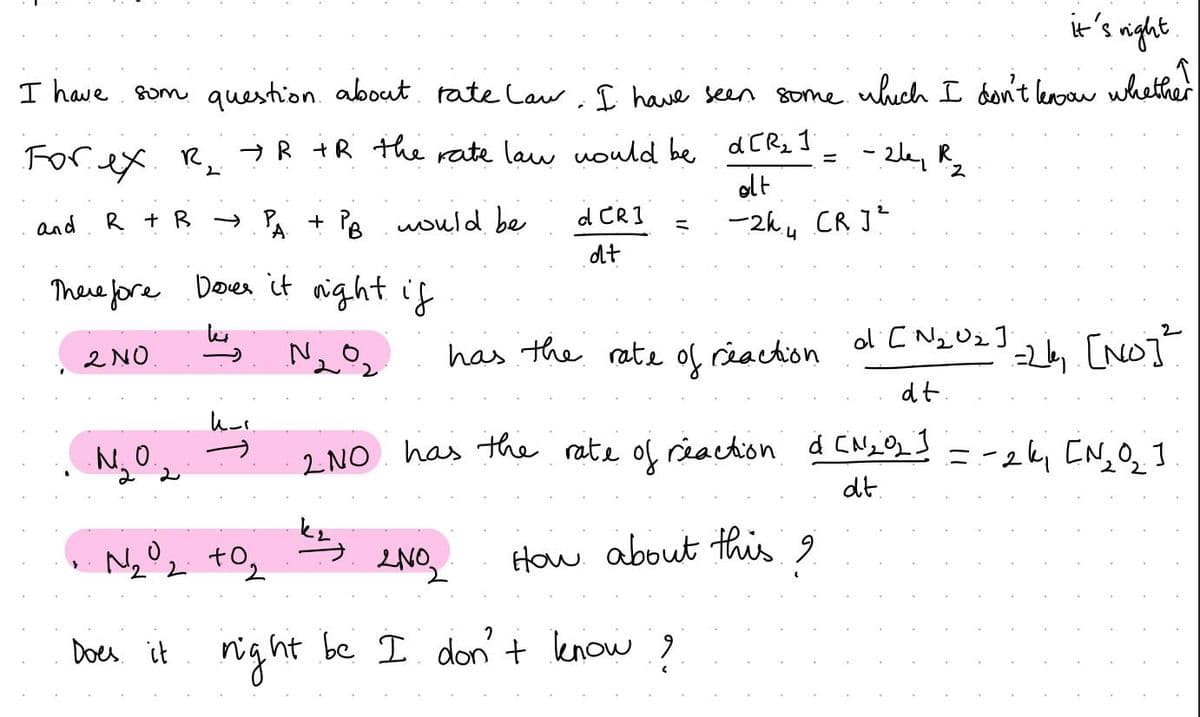 it's right
I have som question about rate Law. I have seen some which I don't know whether ↑
For ex R₂ → R + R the rate law would be d[R₂]/dt = -2k₁ R₂
and R + R → P_A + P_B would be d[R]/dt = -2k₄ [R]²
Therefore Does it right if
2NO →(k₁) N₂O₂ has the rate of reaction d[N₂O₂]/dt = 2k₁ [NO]²
N₂O₂ →(k₋₁) 2NO has the rate of reaction d[N₂O₂]/dt = -2k₁ [N₂O₂]
N₂O₂ + O₂ →(k₂) 2NO₂ How about this ?
Does it right bc I don't know ?